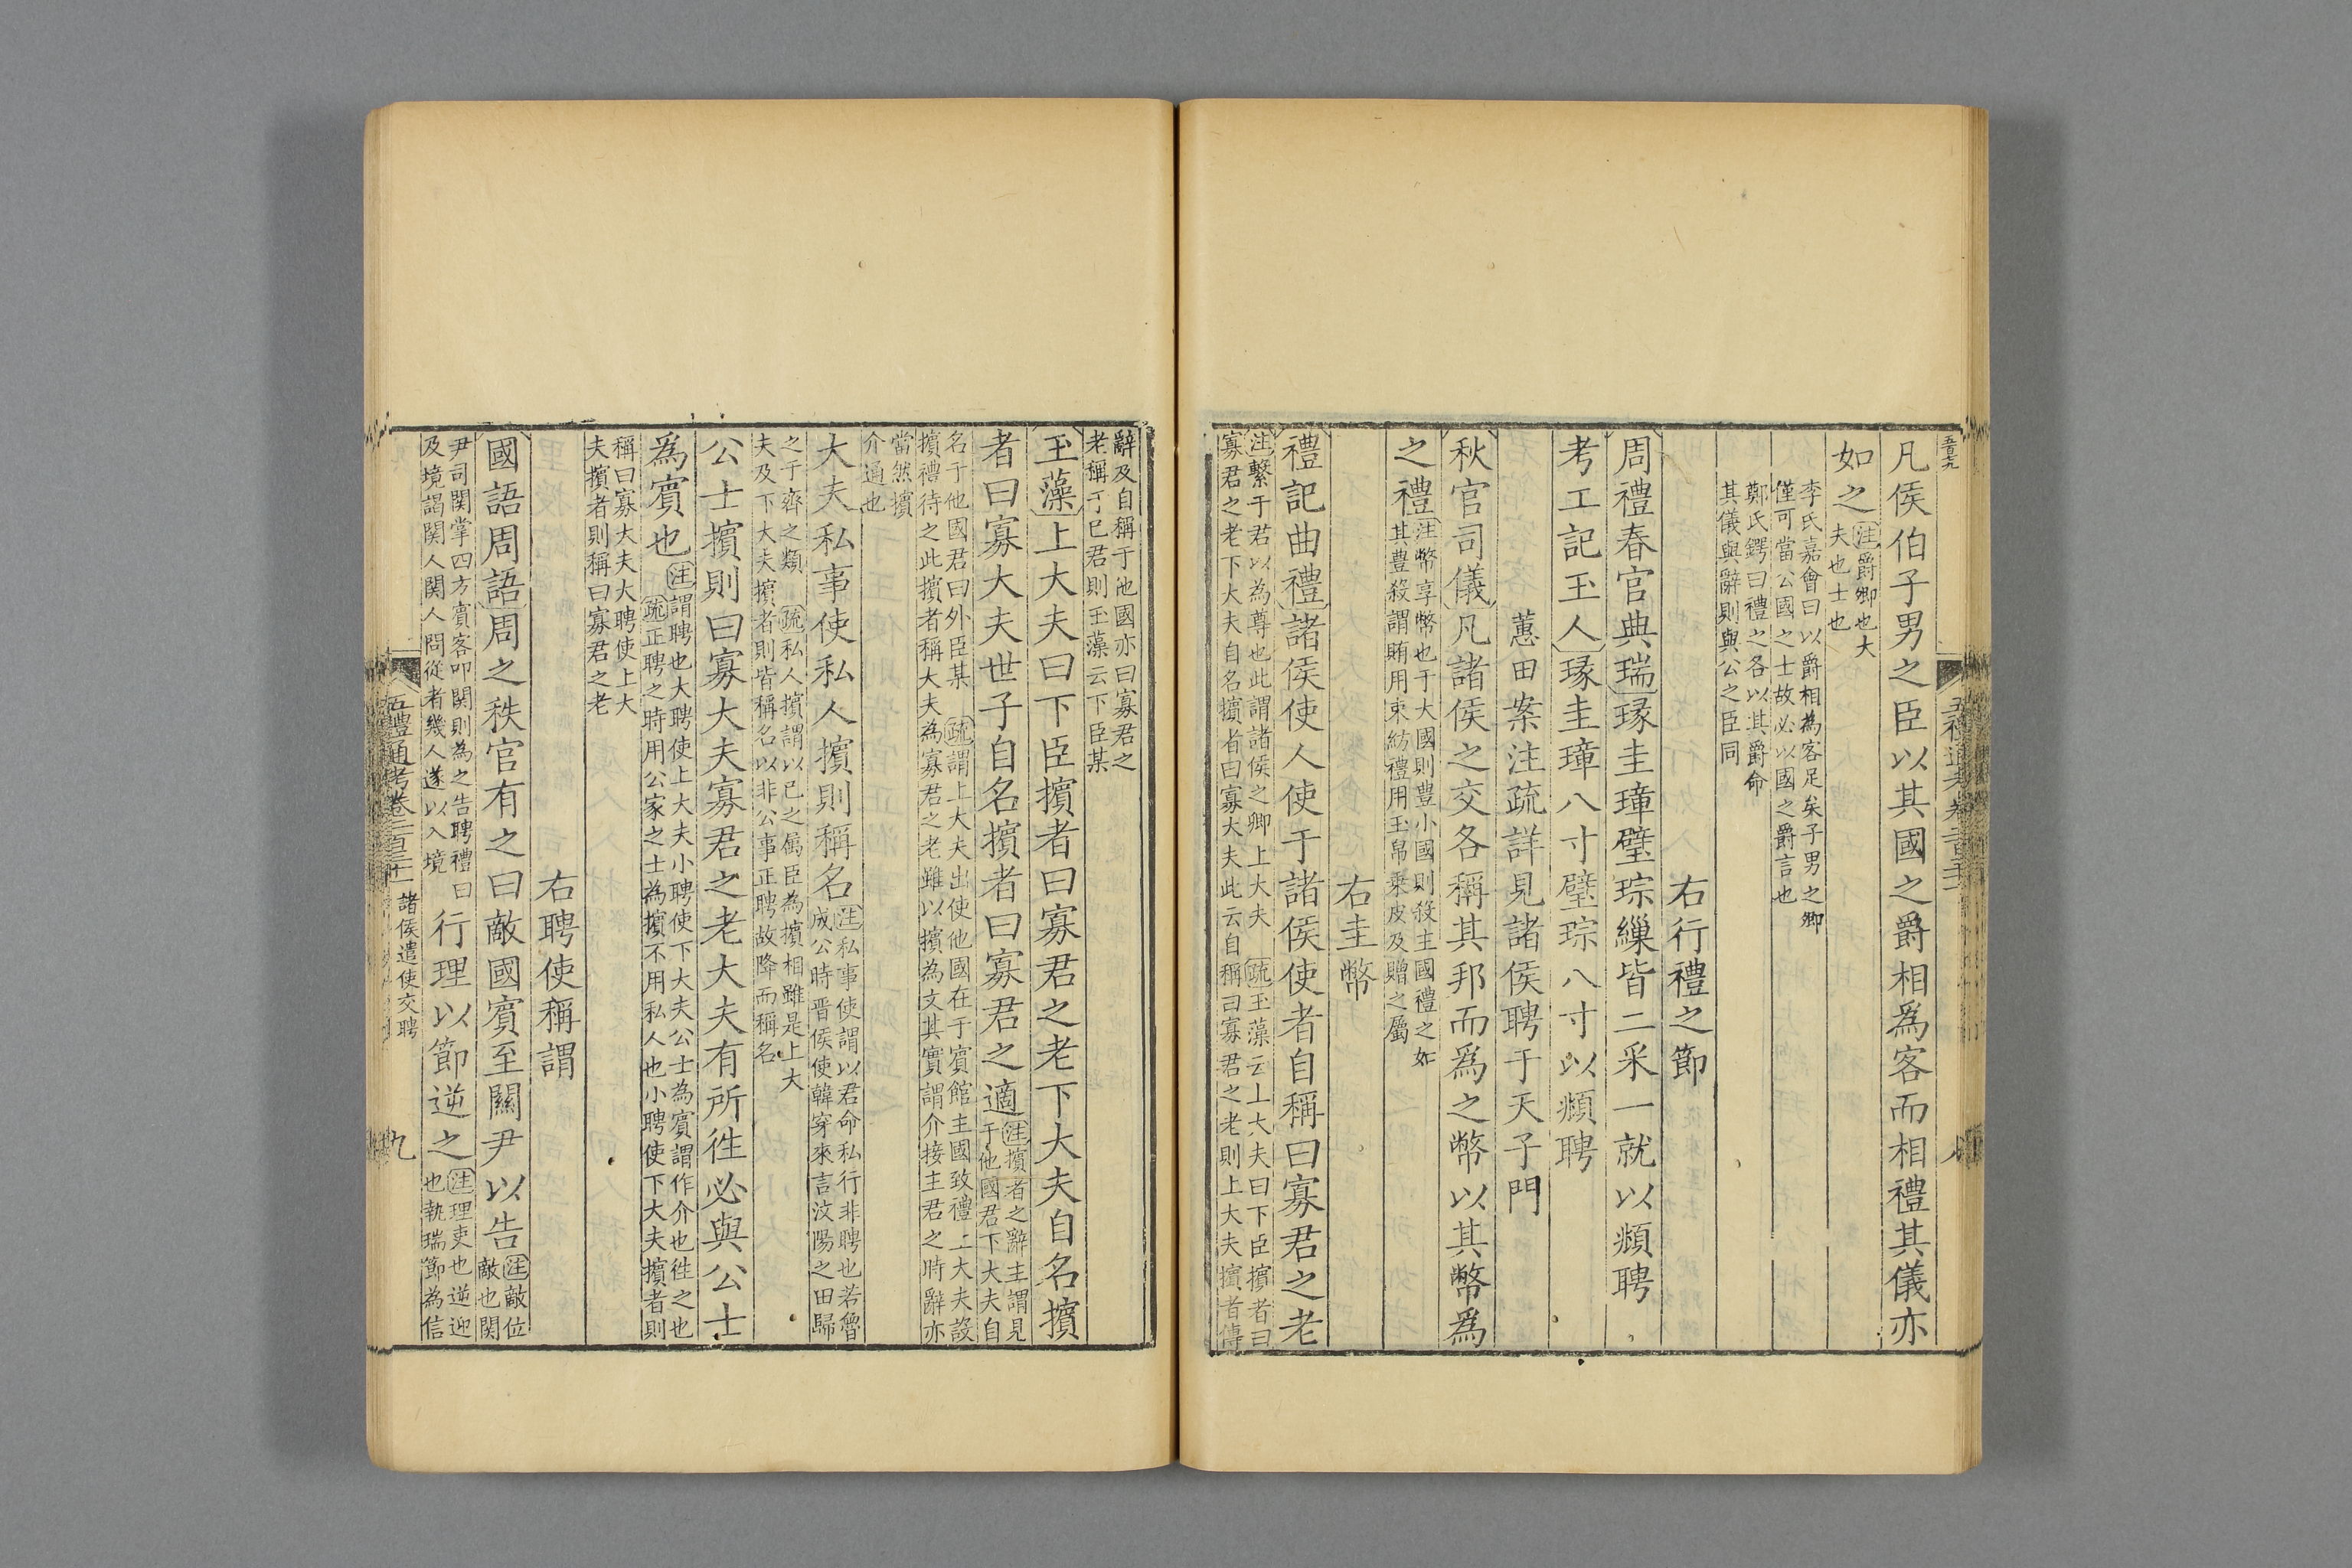 凡侯伯子男之臣以其國之爵相爲客而相禮其儀亦
如之注爵卿也大
夫也士也
李氏嘉會曰以爵相為客足矣子男之卿
僅可當公國之士故必以國之爵言也
鄭氏鍔曰禮之各以其爵命
其儀與辭則與公之臣同
右行禮之節
周禮春官典瑞瑑圭璋璧琮繅皆二采一就以頫聘
考工記玉人瑑圭璋八寸璧琮八寸以頫聘
蕙田案注疏詳見諸侯聘于天子門
秋官司儀凡諸侯之交各稱其邦而爲之幣以其幣爲
之禮注幣享幣也于大國則豊小國則殺主國禮之如
其豊殺謂賄用束紡禮用玉帛乗皮及贈之屬
右圭幣
禮記曲禮諸侯使人使于諸侯使者自稱曰寡君之老
注繫于君以為尊也此謂諸侯之卿上大夫 疏玉藻云上大夫曰下臣擯者曰
寡君之老下大夫自名擯者曰寡大夫此云自稱曰寡君之老則上大夫擯者傳
辭及自稱于他國亦曰寡君之
老稱于已君則玉藻云下臣某
玉藻上大夫曰下臣擯者曰寡君之老下大夫自名擯
者曰寡大夫世子自名擯者曰寡君之適注擯者之辭主謂見
于他國君下大夫自
名于他國君曰外臣某 疏謂上大夫出使他國在于賓館主國致禮上大夫設
擯禮待之此擯者稱大夫為寡君之老雖以擯為文其實謂介接主君之時辭亦
當然擯
介通也
大夫私事使私人擯則稱名注私事使謂以君命私行非聘也若魯
成公時晋侯使韓穿來言汶陽之田歸
之于齊之類 疏私人擯謂以已之属臣為擯相雖是上大
夫及下大夫擯者則皆稱名以非公事正聘故降而稱名
公士擯則曰寡大夫寡君之老大夫有所徃必與公士
為賓也注謂聘也大聘使上大夫小聘使下大夫公士為賓謂作介也徃之也
疏正聘之時用公家之士為擯不用私人也小聘使下大夫擯者則
稱曰寡大夫大聘使上大
夫擯者則稱曰寡君之老
右聘使稱謂
國語周語周之秩官有之曰敵國賓至關尹以告注敵位
敵也関
尹司関掌四方賓客叩関則為之告聘禮曰
及境謁関人関人問從者幾人遂以入境
行理以節逆之注理吏也逆迎
也執瑞節為信
五禮通考卷二百三十一 諸侯遣使交聘
九